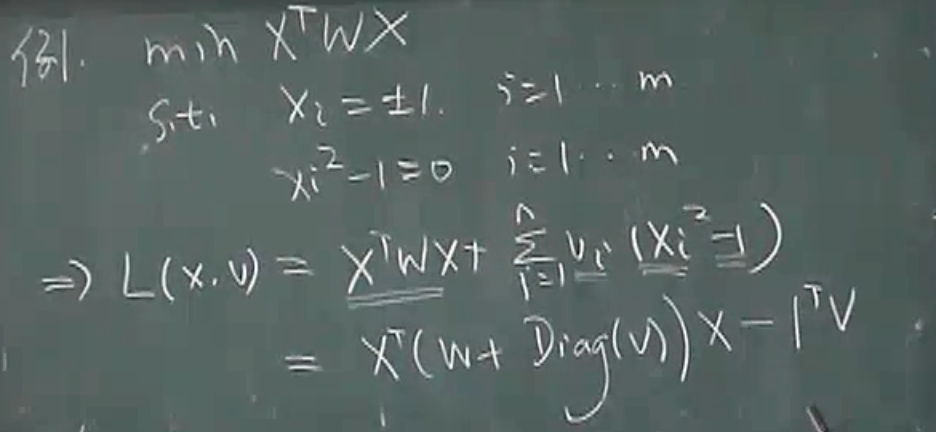 例1. min X^T W X
s.t. x_i = ±1. i=1 ... m
x_i^2 - 1 = 0 i=1 ... m
⇒ L(x, v) = X^T W X + ∑_{i=1}^n v_i (x_i^2 - 1)
= X^T (W + Diag(v)) X - 1^T V